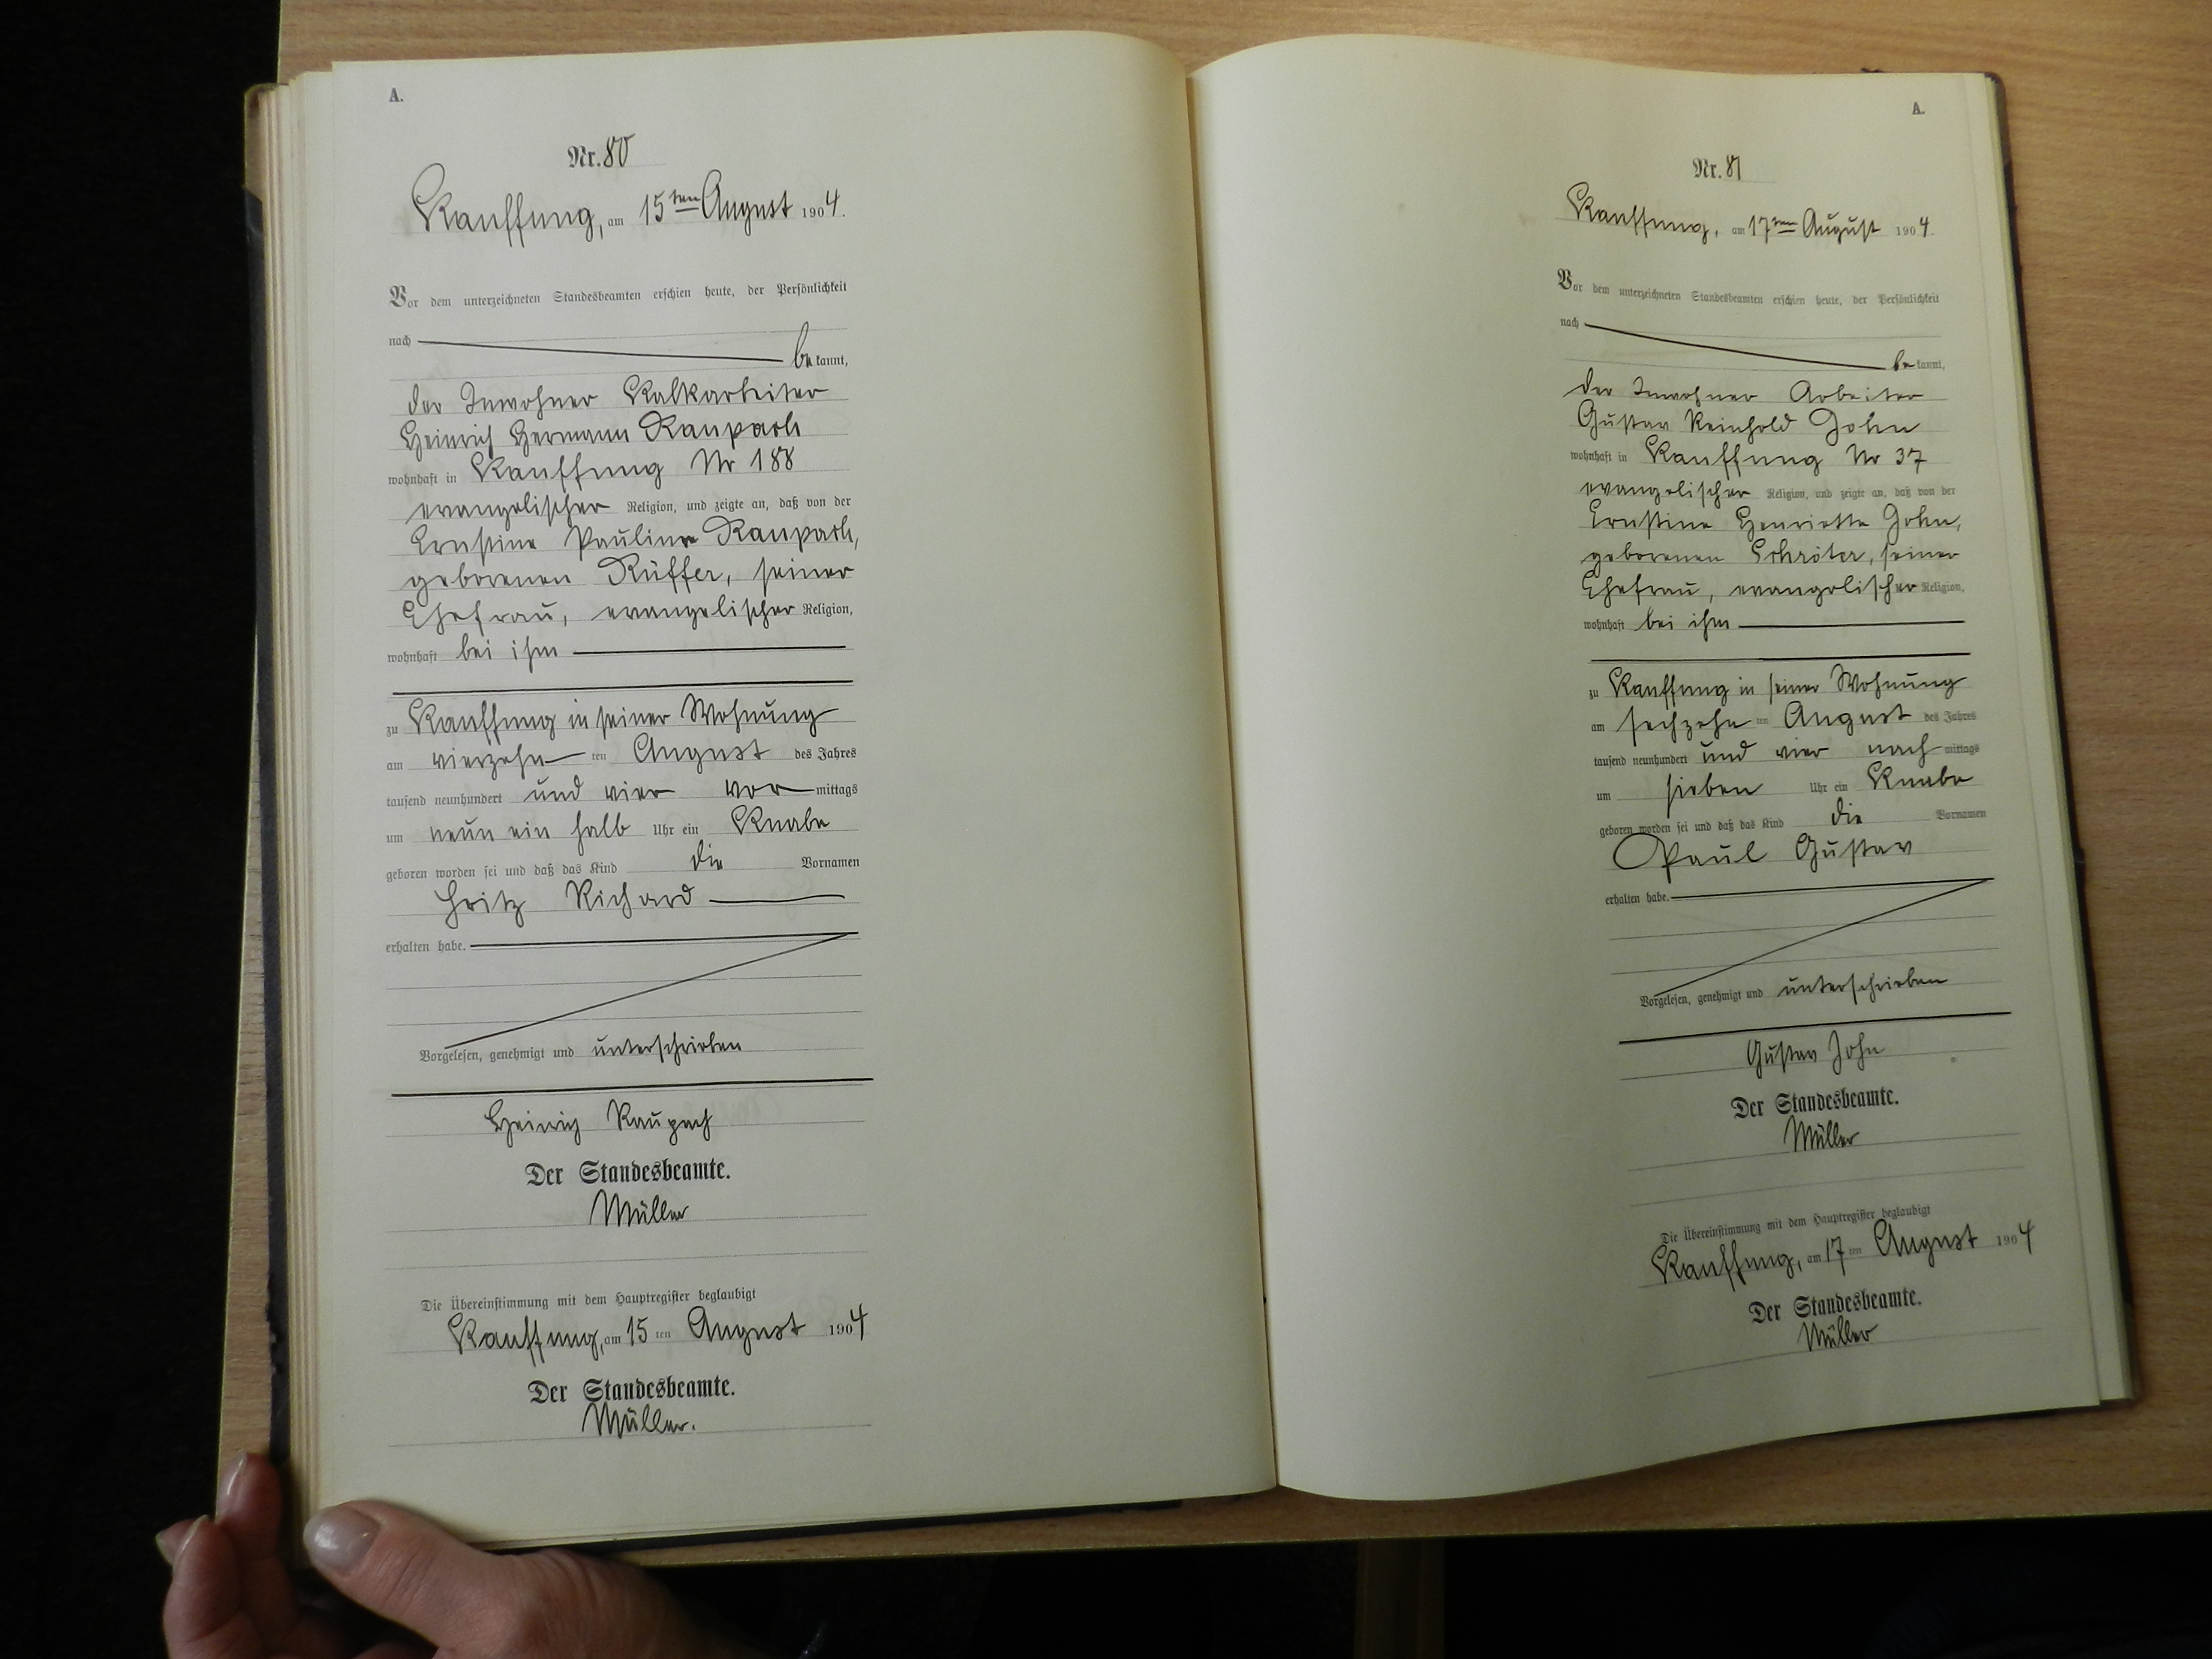 A.
Nr. 80
Kauffung, am 15ten August 1904.
Vor dem unterzeichneten Standesbeamten erschien heute, der Persönlichkeit
nach
bekannt,
der Inwohner Kalkarbeiter
Heinrich Hermann Raupach
wohnhaft in Kauffung Nr 188
evangelischer Religion, und zeigte an, daß von der
Ernstine Pauline Raupach,
geborenen Rüffer, seiner
Ehefrau, evangelischer Religion,
wohnhaft bei ihm
zu Kauffung in seiner Wohnung
am vierzehn ten August des Jahres
tausend neunhundert und vier vor mittags
um neun ein halb Uhr ein Knabe
geboren worden sei und daß das Kind die Vornamen
Fritz Richard
erhalten habe.
Vorgelesen, genehmigt und unterschrieben
Heinrich Raupach
Der Standesbeamte.
Müller
Die Übereinstimmung mit dem Hauptregister beglaubigt
Kauffung, am 15 ten August 1904
Der Standesbeamte.
Müller.
A.
Nr. 81
Kauffung, am 17ten August 1904.
Vor dem unterzeichneten Standesbeamten erschien heute, der Persönlichkeit
nach
bekannt,
der Inwohner Arbeiter
Gustav Reinhold John
wohnhaft in Kauffung Nr 37
evangelischer Religion, und zeigte an, daß von der
Ernstine Henriette John,
geborenen Schröter, seiner
Ehefrau, evangelischer Religion,
wohnhaft bei ihm
zu Kauffung in seiner Wohnung
am sechzehn ten August des Jahres
tausend neunhundert und vier nach mittags
um sieben Uhr ein Knabe
geboren worden sei und daß das Kind die Vornamen
Paul Gustav
erhalten habe.
Vorgelesen, genehmigt und unterschrieben
Gustav John
Der Standesbeamte.
Müller
Die Übereinstimmung mit dem Hauptregister beglaubigt
Kauffung, am 17 ten August 1904
Der Standesbeamte.
Müller